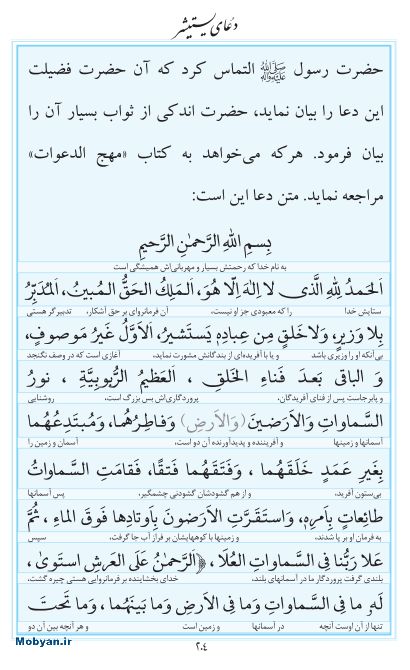 دعای یستشیر
حضرت رسول ﷺ التماس کرد که آن حضرت فضیلت
این دعا را بیان نماید، حضرت اندکی از ثواب بسیار آن را
بیان فرمود. هرکه می‌خواهد به کتاب «مهج الدعوات»
مراجعه نماید. متن دعا این است:
بِسمِ اللهِ الرَّحمٰنِ الرَّحیمِ
به نام خدا که رحمتش بسیار و مهربانی‌اش همیشگی است
اَلحَمدُ لِلهِ الَّذی لا اِلٰهَ اِلّا هُوَ، اَلمَلِکُ الحَقُّ المُبینُ، اَلمُدَبِّرُ
ستایش خدا را که معبودی جز او نیست، آن فرمانروای بر حق آشکار، تدبیرگر هستی
بِلا وَزیرٍ، وَلا خَلقٍ مِن عِبادِهِ یَستَشیرُ، اَلاَوَّلُ غَیرُ مَوصوفٍ،
بی‌آنکه او را وزیری باشد و یا با آفریده‌ای از بندگانش مشورت نماید، آغازی است که در وصف نگنجد
وَ الباقی بَعدَ فَناءِ الخَلقِ ، اَلعَظیمُ الرُّبوبِیَّةِ ، نورُ
و پابرجاست پس از فنای آفریدگان، پروردگاری‌اش بس بزرگ است، روشنایی
السَّماواتِ وَالاَرَضینَ (وَالاَرضِ) وَفاطِرُهُما، وَمُبتَدِعُهُما
آسمانها و زمینها و آفریننده و پدیدآورنده آن دو است، آسمان و زمین را
بِغَیرِ عَمَدٍ خَلَقَهُما ، وَفَتَقَهُما فَتقًا، فَقامَتِ السَّماواتُ
بی‌ستون آفرید، و از هم گشودشان گشودنی چشمگیر، پس آسمانها
طائِعاتٍ بِاَمرِهِ، وَاستَقَرَّتِ الاَرَضونَ بِاَوتادِها فَوقَ الماءِ ، ثُمَّ
به فرمان او بر پا شدند، و زمینها با کوههایشان بر فراز آب جا گرفت، سپس
عَلا رَبُّنا فِی السَّماواتِ العُلا ، ﴿اَلرَّحمٰنُ عَلَی العَرشِ استَویٰ ،
بلندی گرفت پروردگار ما در آسمانهای بلند، خدای بخشاینده بر فرمانروایی هستی چیره گشت،
لَهُ ما فِی السَّماواتِ وَما فِی الاَرضِ وَما بَینَهُما ، وَما تَحتَ
تنها از آن اوست آنچه در آسمانها و زمین است و هر آنچه بین آن دو
۲۰۴
Mobyan.ir